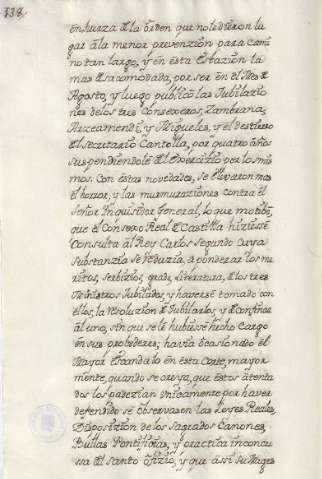 338,
enfuerza de la orden que no le dieron lu
gar a la menor prevenzion para cami
no tan largo, y en esta estazion la
mas desacomodada, por ser en el Mes de
Agosto, y luego publicò las Jubilazio
nes de los tres Consexeros, Zambrana,
Arzeamendi, y Migueles, y el destierro
del Secretario Cantolla, por quatro años
suspendiendole del exercizio por los mis
mos. Con estas novedades, se elevaron mas
el horror, y las murmuraziones contra el
Señor Inquisidor General, lo que motibò,
que el Consexo Real de Castilla hiziesse
Consulta al Rey Carlos segundo cuya
substanzia se reduzia, a ponderar los me
ritos, serbizios, grado, Literatura, de los tres
Ministros Jubilados, y haverse tomado con
ellos, la resoluzion de Jubilarlos, y de confinar
al uno, sin que se le hubiesse hecho Cargo
en sus prozederes; havia ocasionado el
Mayor escandalo en esta Corte, mayor
mente, quando se creya, que estos atenta
dos los padezian unicamente por haver
defendido se observasen las Leyes Reales,
Disposizion de los Sagrados Canones,
Bullas Pontifizias, y practica inconcu
sa del Santo Ofizio, y que assi su Mages